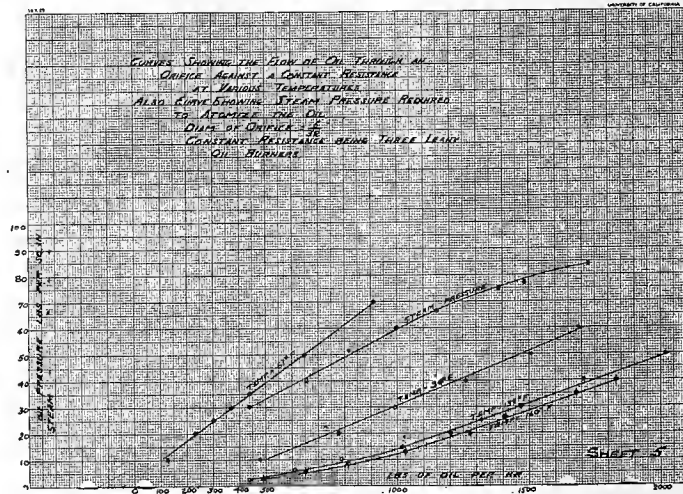 UNIVERSITY OF CALIFORNIA
CURVES SHOWING THE FLOW OF OIL THROUGH AN
ORIFICE AGAINST A CONSTANT RESISTANCE
AT VARIOUS TEMPERATURES
ALSO CURVE SHOWING STEAM PRESSURE REQUIRED
TO ATOMIZE THE OIL
DIAM OF ORIFICE =
CONSTANT RESISTANCE BEING THREE LEAHY
OIL BURNERS
100
90
80
70
60
50
40
30
20
10
0
OIL PRESSURE LBS PER SQ IN
STEAM
STEAM PRESSURE
TEMP
TEMP
TEMP
SHEET 5
LBS OF OIL PER HR
0 100 200 300 400 500 1000 1500 2000